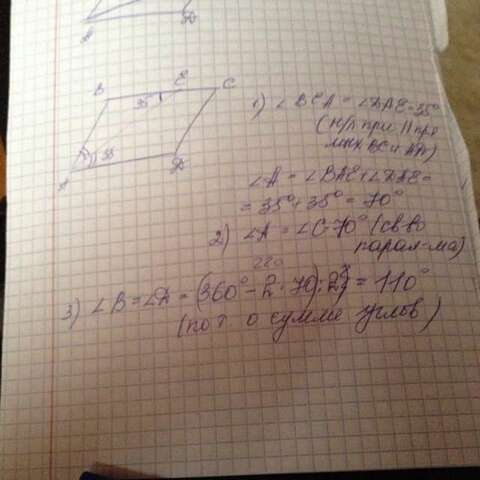 A D
B E C
35
35
A D
1) ∠BEA = ∠DAE = 35°
(н/л при || пря
мых BC и AD)
∠A = ∠BAE + ∠DAE =
= 35° + 35° = 70°
2) ∠A = ∠C 70° (св-во
парал-ма)
220
3) ∠B = ∠D = (360° - 2 · 70) : 2 = 110°
(по т. о сумме углов)